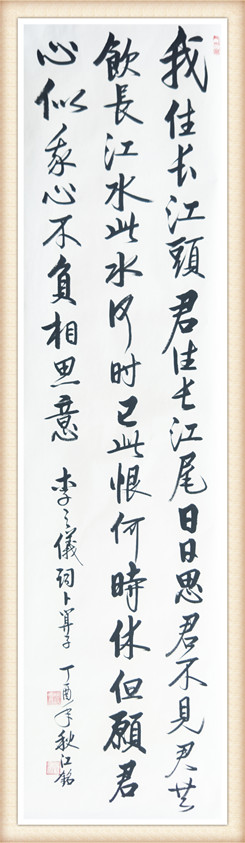 我住长江頭君住长江尾日日思君不見君共
飲長江水此水何时已此恨何時休但願君
心似我心不負相思意 李之儀词卜算子 丁酉年秋江铭